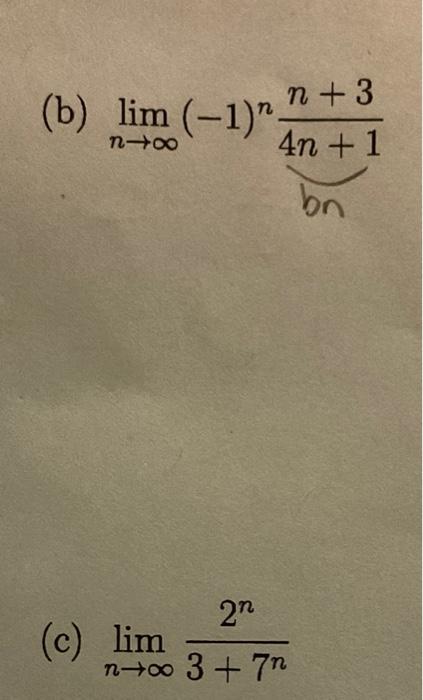 (b) lim n→∞ (−1)ⁿ (n + 3)/(4n + 1)
bn
(c) lim n→∞ 2ⁿ/(3 + 7ⁿ)